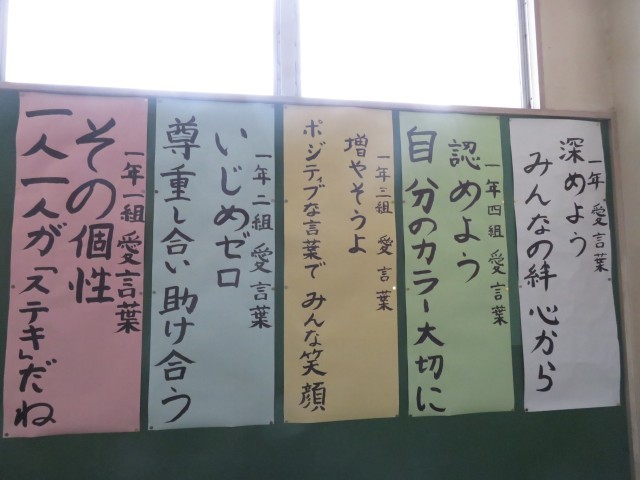 一年 愛言葉
深めよう
みんなの絆 心から
一年四組 愛言葉
認めよう
自分のカラー大切に
一年三組 愛言葉
増やそうよ
ポジティブな言葉で みんな笑顔
一年二組 愛言葉
いじめゼロ
尊重し合い 助け合う
一年一組 愛言葉
その個性
一人一人が「ステキ」だね